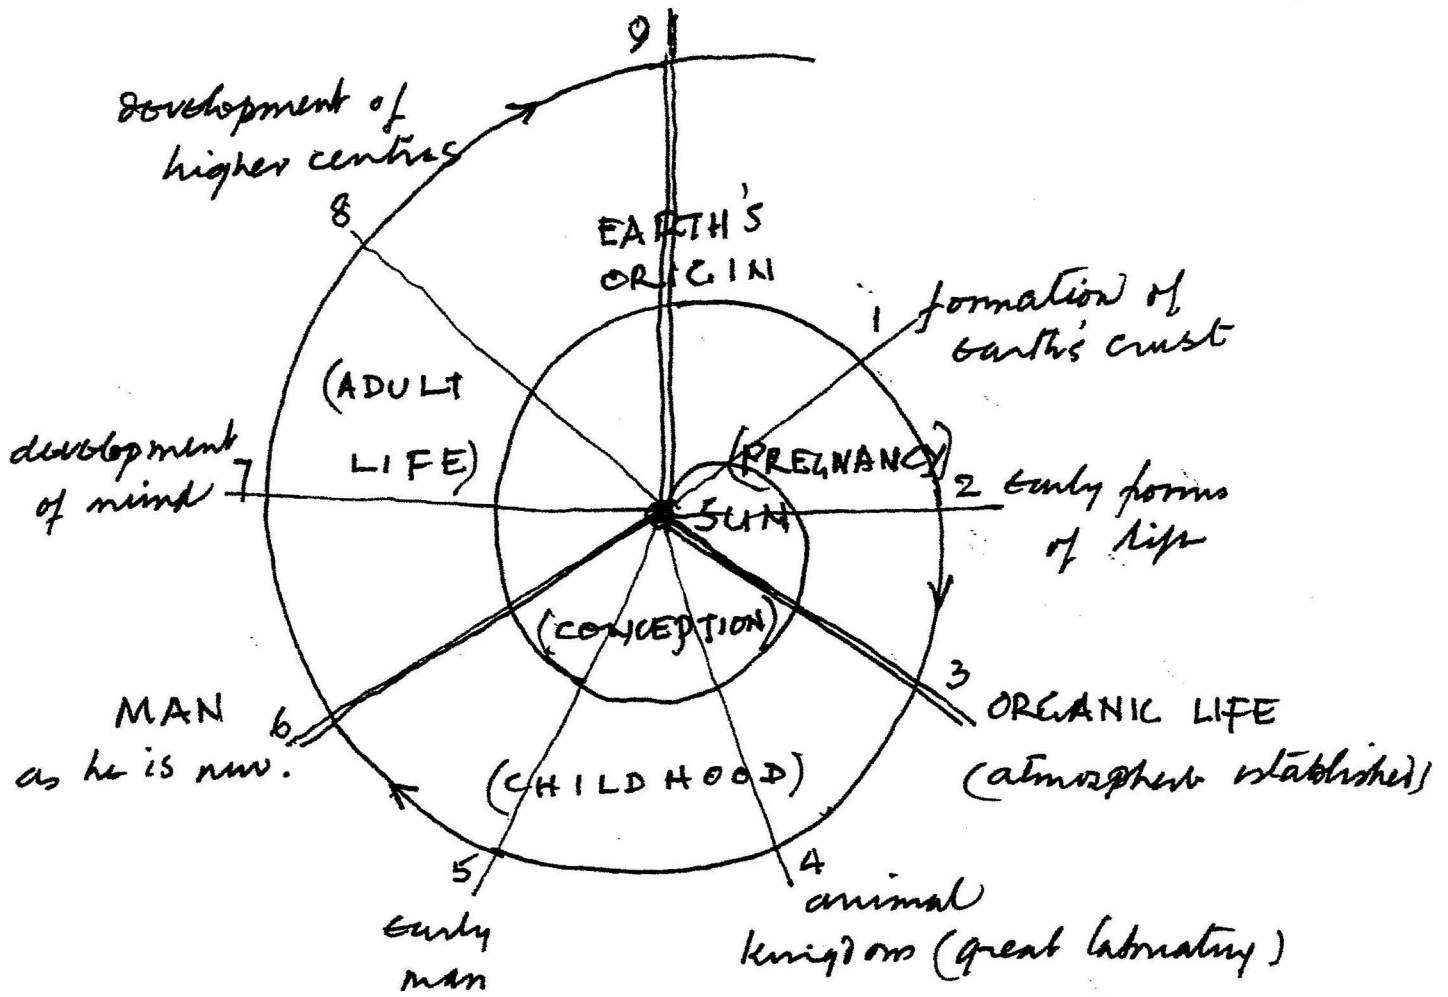 9
development of
higher centres
8
EARTH'S
ORIGIN
1
formation of
Earth's crust
(ADULT
LIFE)
development
of mind
7
(PREGNANCY)
SUN
2
Early forms
of life
(CONCEPTION)
3
ORGANIC LIFE
(atmosphere established)
MAN
as he is now.
6
(CHILDHOOD)
5
Early
man
4
animal
kingdom (great laboratory)